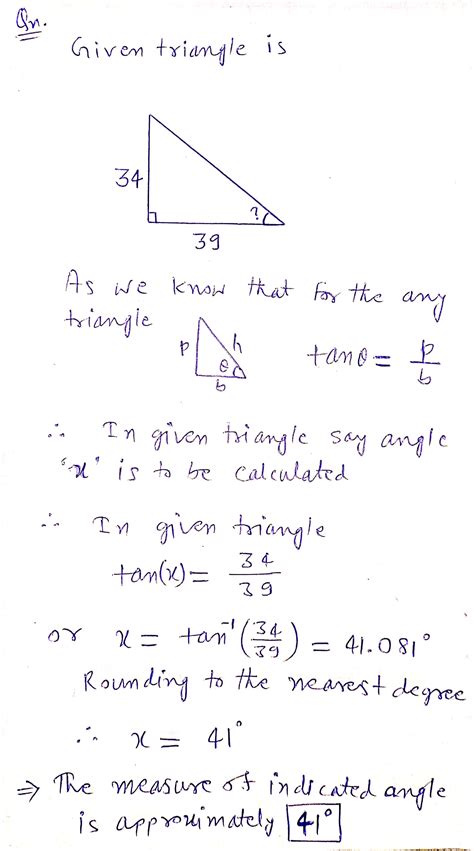 Qn.
Given triangle is
34
?
39
As we know that for the any
triangle
p h
θ
b
tanθ = p/b
∴ In given triangle say angle
"x" is to be calculated
∴ In given triangle
tan(x) = 34/39
or x = tan⁻¹(34/39) = 41.081°
Rounding to the nearest degree
∴ x = 41°
⇒ The measure of indicated angle
is approximately 41°